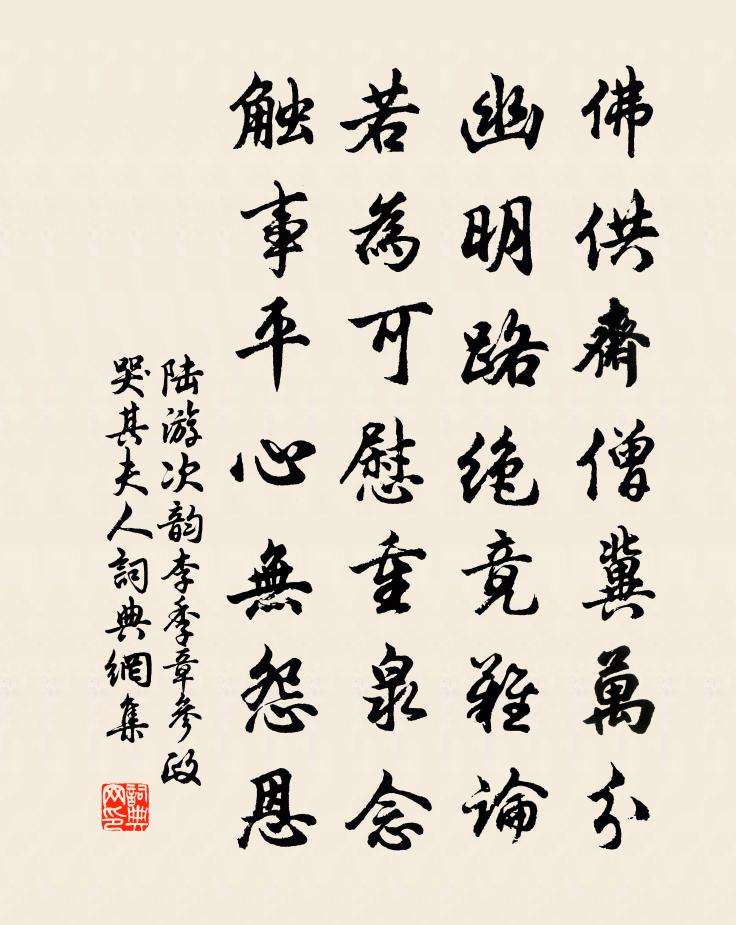 佛供齋僧冀萬分
幽明路绝竟難論
若為可慰重泉念
触事平心無怨恩
陆游次韵李季章參政
哭其夫人詞典網集
詞典
网印